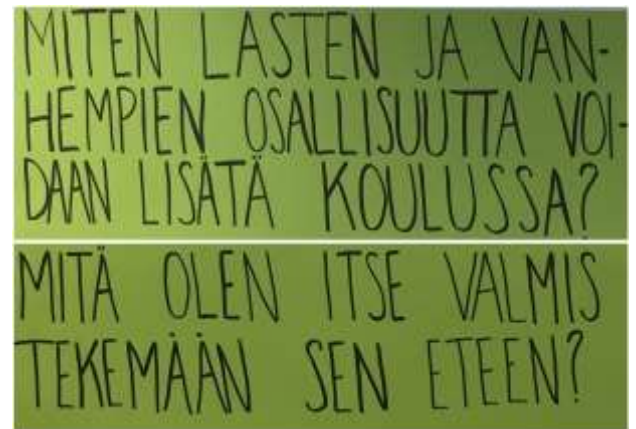 MITEN LASTEN JA VAN-
HEMPIEN OSALLISUUTTA VOI-
DAAN LISÄTÄ KOULUSSA?
MITÄ OLEN ITSE VALMIS
TEKEMÄÄN SEN ETEEN?